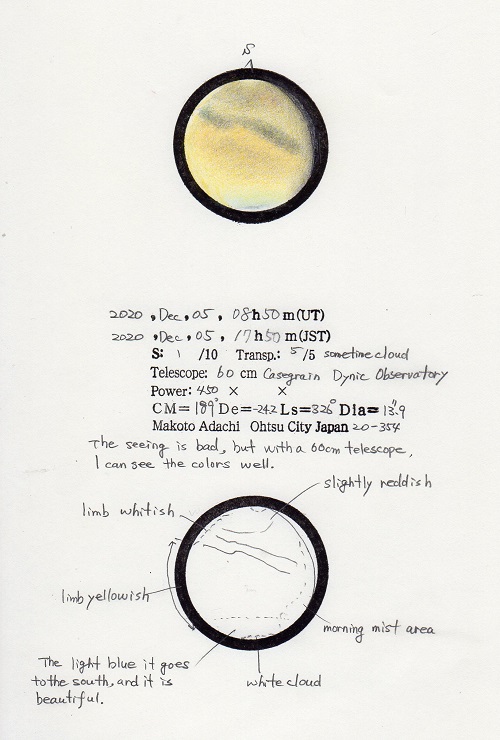 S
2020, Dec, 05, 08h50m(UT)
2020, Dec, 05, 17h50m(JST)
S: 1 /10 Transp.: 5/5 sometime cloud
Telescope: 60 cm Casegrain Dynic Observatory
Power: 450 × ×
CM=189° De=-24.2 Ls=326° Dia=13.9"
Makoto Adachi Ohtsu City Japan 20-354
The seeing is bad, but with a 60cm telescope,
I can see the colors well.
slightly reddish
limb whitish
limb yellowish
morning mist area
The light blue it goes
to the south, and it is
beautiful.
white cloud